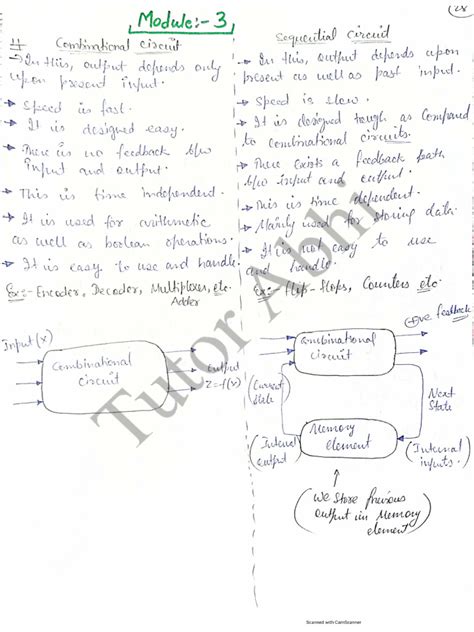 Module:- 3
28
Combinational circuit
→ In this, output depends only
upon present input.
→ Speed is fast.
→ It is designed easy.
→ There is no feedback b/w
input and output.
→ This is time independent.
→ It is used for arithmetic
as well as boolean operations.
→ It is easy to use and handle.
Ex:- Encoder, Decoder, Multiplexer, etc.
Adder
Input (x)
Combinational
circuit
output
Z=f(x)
Sequential circuit
→ In this, output depends upon
present as well as past input.
→ Speed is slow.
→ It is designed tough as compared
to combinational circuits.
→ There exists a feedback path
b/w input and output.
→ This is time dependent.
→ Mainly used for storing data.
→ It is not easy to use
and handle.
Ex:- Flip-Flops, Counters etc.
+ve feedback
Combinational
circuit
(Current
state)
Next
State
Memory
element
(Internal
output)
(Internal
inputs)
(We store previous
output in Memory
element)
Tutor Abhi
Scanned with CamScanner